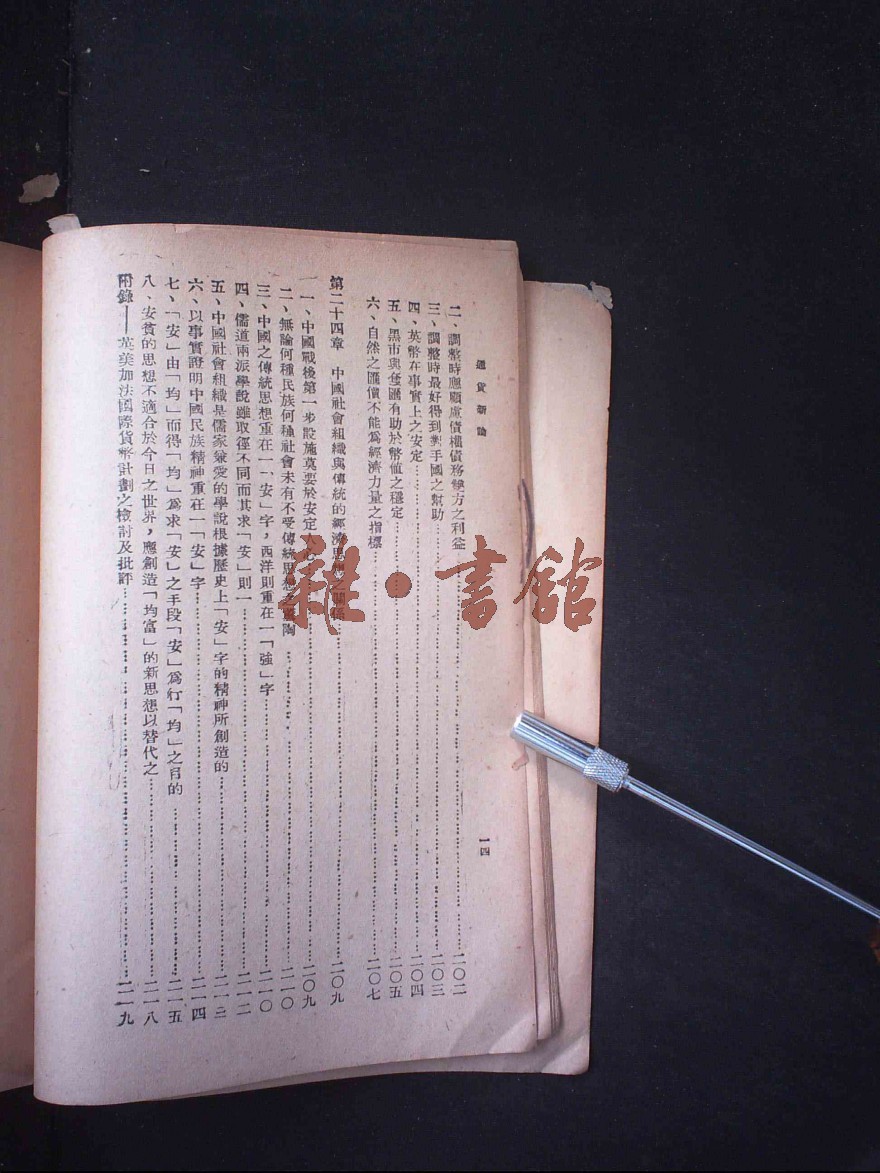 通貨新論
一四
二、調整時應顧慮債權債務雙方之利益……二〇二
三、調整時最好得到對手國之幫助……二〇三
四、英幣在事實上之安定……二〇四
五、黑市與套匯有助於幣値之穩定……二〇五
六、自然之匯價不能爲經濟力量之指標……二〇七
第二十四章 中國社會組織與傳統的經濟思想之關係……二〇九
一、中國戰後第一步設施莫要於安定人心……二〇九
二、無論何種民族何種社會未有不受傳統思想之薰陶……二一〇
三、中國之傳統思想重在一「安」字，西洋則重在一「強」字……二一〇
四、儒道兩派學說雖取徑不同而其求「安」則一……二一二
五、中國社會組織是儒家兼愛的學說根據歷史上「安」字的精神所創造的……二一三
六、以事實證明中國民族精神重在一「安」字……二一四
七、「安」由「均」而得「均」爲求「安」之手段「安」爲行「均」之目的……二一五
八、安貧的思想不適合於今日之世界，應創造「均富」的新思想以替代之……二一八
附錄——英美加法國際貨幣計劃之檢討及批評……二一九
雜·書館